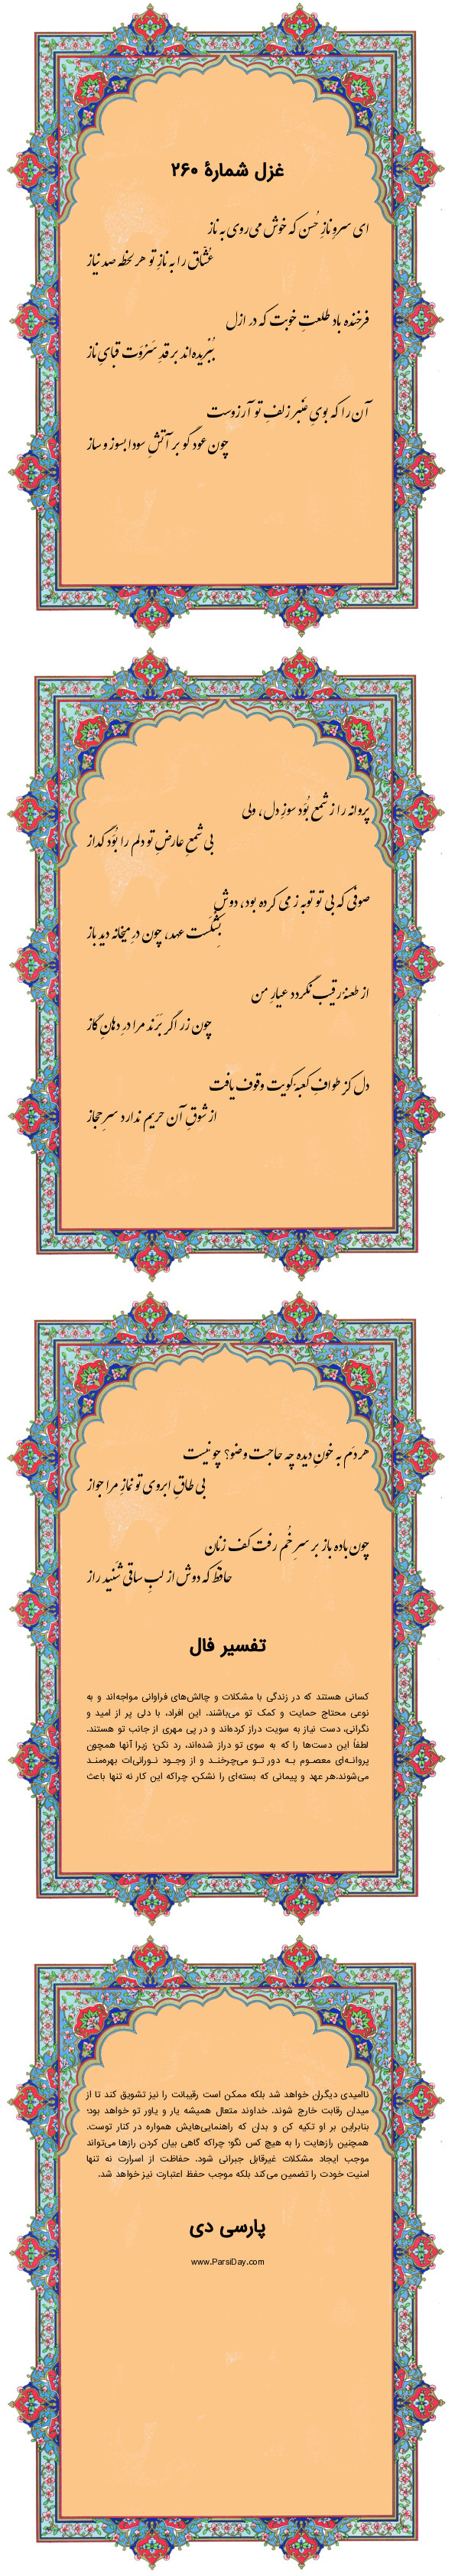 غزل شمارهٔ ۲۶۰
ای سروِ نازِ حُسن که خوش می‌روی به ناز
عُشّاق را به نازِ تو هر لحظه صد نیاز
فرخنده باد طلعتِ خوبت که در ازل
بُبْریده‌اند بر قدِ سَرْوَت قبایِ ناز
آن را که بویِ عَنبرِ زلفِ تو آرزوست
چون عود گو بر آتشِ سودا بسوز و ساز
پروانه را ز شمع بُوَد سوزِ دل، ولی
بی شمعِ عارضِ تو دلم را بُوَد گداز
صوفی که بی تو توبه ز می کرده بود، دوش
بِشْکَست عهد، چون درِ میخانه دید باز
از طعنهٔ رقیب نگردد عیارِ من
چون زر اگر بَرَند مرا در دهانِ گاز
دل کز طوافِ کعبهٔ کویت وقوف یافت
از شوقِ آن حریم ندارد سرِ حجاز
هر دَم به خونِ دیده چه حاجت وضو؟ چو نیست
بی طاقِ ابروی تو نمازِ مرا جواز
چون باده باز بر سرِ خُم رفت کف زنان
حافظ که دوش از لبِ ساقی شنید راز
تفسیر فال
کسانی هستند که در زندگی با مشکلات و چالش‌های فراوانی مواجه‌اند و به
نوعی محتاج حمایت و کمک تو می‌باشند. این افراد، با دلی پر از امید و
نگرانی، دست نیاز به سویت دراز کرده‌اند و در پی مهری از جانب تو هستند.
لطفاً این دست‌ها را که به سوی تو دراز شده‌اند، رد نکن؛ زیرا آنها همچون
پروانه‌ای معصوم به دور تو می‌چرخند و از وجود نورانی‌ات بهره‌مند
می‌شوند.هر عهد و پیمانی که بسته‌ای را نشکن، چراکه این کار نه تنها باعث
ناامیدی دیگران خواهد شد بلکه ممکن است رقیبانت را نیز تشویق کند تا از
میدان رقابت خارج شوند. خداوند متعال همیشه یار و یاور تو خواهد بود؛
بنابراین بر او تکیه کن و بدان که راهنمایی‌هایش همواره در کنار توست.
همچنین رازهایت را به هیچ کس نگو؛ چراکه گاهی بیان کردن رازها می‌تواند
موجب ایجاد مشکلات غیرقابل جبرانی شود. حفاظت از اسرارت نه تنها
امنیت خودت را تضمین می‌کند بلکه موجب حفظ اعتبارت نیز خواهد شد.
پارسی دی
www.ParsiDay.com